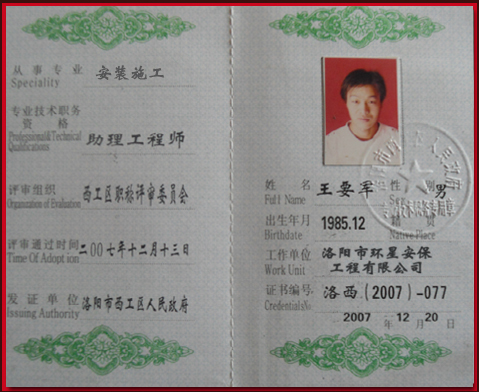 从事专业 安装施工
Speciality
专业技术职务
资格 助理工程师
Professional&Technical
Qualifications
评审组织 西工区职称评审委员会
Organization of Evaluation
评审通过时间 二00七年十二月十三日
Time Of Adoption
发证单位 洛阳市西工区人民政府
Issuing Authority
姓名 王晏军 性别 男
Full Name Sex
出生年月 1985.12 籍贯
Birthdate Native Place
工作单位 洛阳市环星安保
Work Unit 工程有限公司
证书编号 洛西(2007)-077
Credentials№
2007 年 12 月 20 日